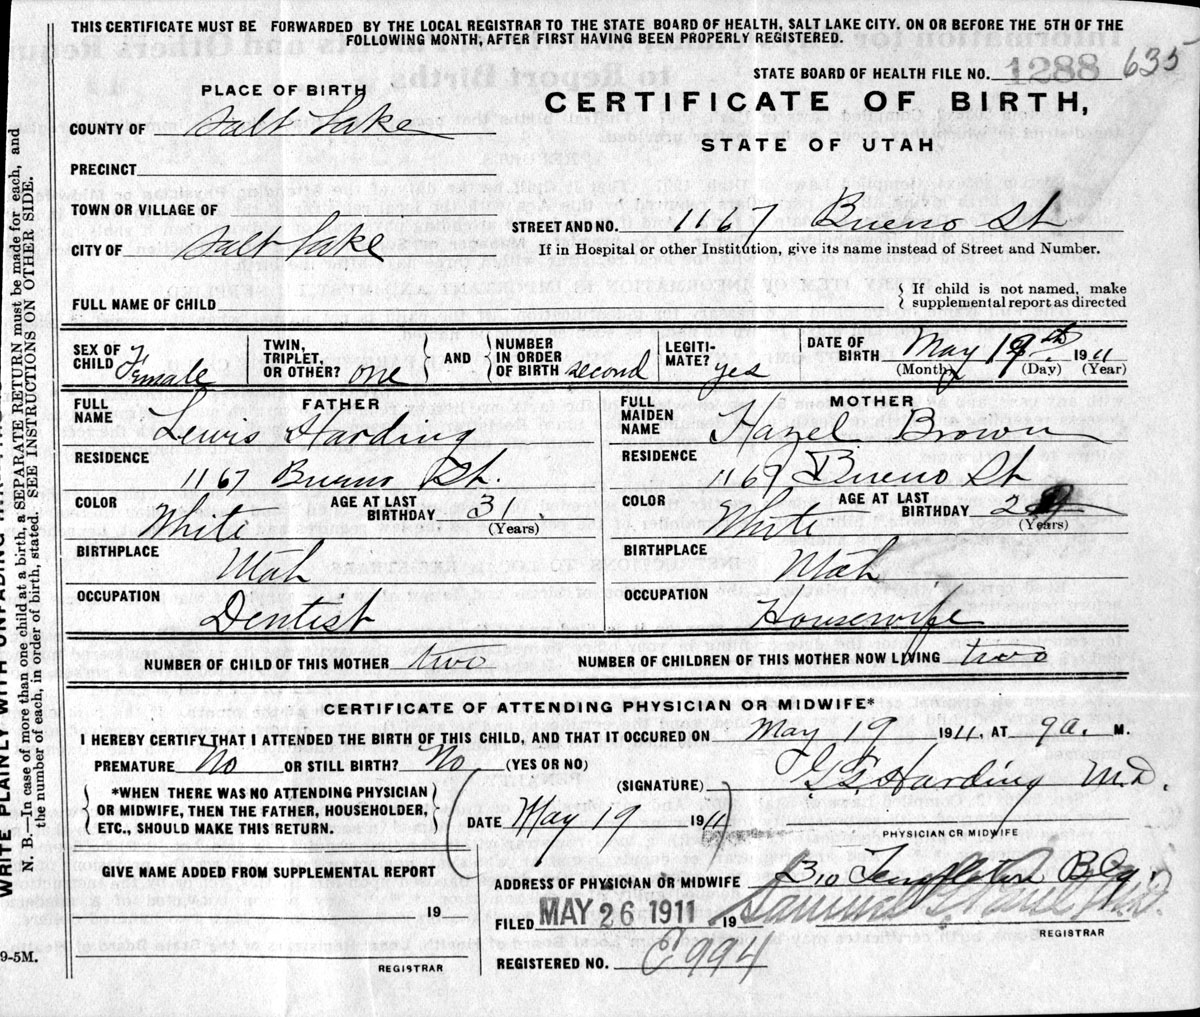 THIS CERTIFICATE MUST BE FORWARDED BY THE LOCAL REGISTRAR TO THE STATE BOARD OF HEALTH, SALT LAKE CITY, ON OR BEFORE THE 5TH OF THE
FOLLOWING MONTH, AFTER FIRST HAVING BEEN PROPERLY REGISTERED.
STATE BOARD OF HEALTH FILE NO. 1288 635
PLACE OF BIRTH
CERTIFICATE OF BIRTH,
STATE OF UTAH
COUNTY OF Salt Lake
PRECINCT
TOWN OR VILLAGE OF
CITY OF Salt Lake
STREET AND NO. 1167 Bueno St
If in Hospital or other Institution, give its name instead of Street and Number.
FULL NAME OF CHILD
{ If child is not named, make
supplemental report as directed
SEX OF CHILD Female
TWIN, TRIPLET, OR OTHER? one } AND { NUMBER IN ORDER OF BIRTH second
LEGITI-MATE? yes
DATE OF BIRTH May 19th 1911
(Month) (Day) (Year)
FATHER
FULL NAME Lewis Harding
RESIDENCE 1167 Bueno St.
COLOR White AGE AT LAST BIRTHDAY 31 (Years)
BIRTHPLACE Utah
OCCUPATION Dentist
MOTHER
FULL MAIDEN NAME Hazel Brown
RESIDENCE 1169 Bueno St
COLOR White AGE AT LAST BIRTHDAY (Years)
BIRTHPLACE Utah
OCCUPATION Housewife
NUMBER OF CHILD OF THIS MOTHER two NUMBER OF CHILDREN OF THIS MOTHER NOW LIVING two
CERTIFICATE OF ATTENDING PHYSICIAN OR MIDWIFE*
I HEREBY CERTIFY THAT I ATTENDED THE BIRTH OF THIS CHILD, AND THAT IT OCCURED ON May 19 1911, AT 9 a. M.
PREMATURE No OR STILL BIRTH? No (YES OR NO)
{ *WHEN THERE WAS NO ATTENDING PHYSICIAN
OR MIDWIFE, THEN THE FATHER, HOUSEHOLDER,
ETC., SHOULD MAKE THIS RETURN. }
(SIGNATURE) Harding M.D.
DATE May 19 1911
PHYSICIAN OR MIDWIFE
GIVE NAME ADDED FROM SUPPLEMENTAL REPORT
19
REGISTRAR
ADDRESS OF PHYSICIAN OR MIDWIFE 310 Templeton Bldg.
FILED MAY 26 1911 19
REGISTRAR
REGISTERED NO. C994
WRITE PLAINLY WITH UNFADING
N. B.—In case of more than one child at a birth, a SEPARATE RETURN must be made for each, and
the number of each, in order of birth, stated. SEE INSTRUCTIONS ON OTHER SIDE.
9-5M.